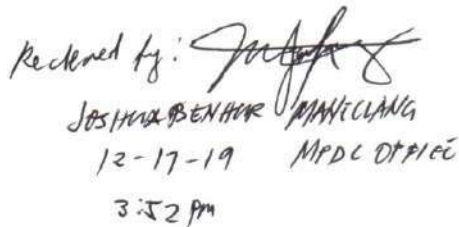 Received by:
JOSHUA BENHUR MANICLANG
12-17-19 MPDC OFFICE
3:52 PM